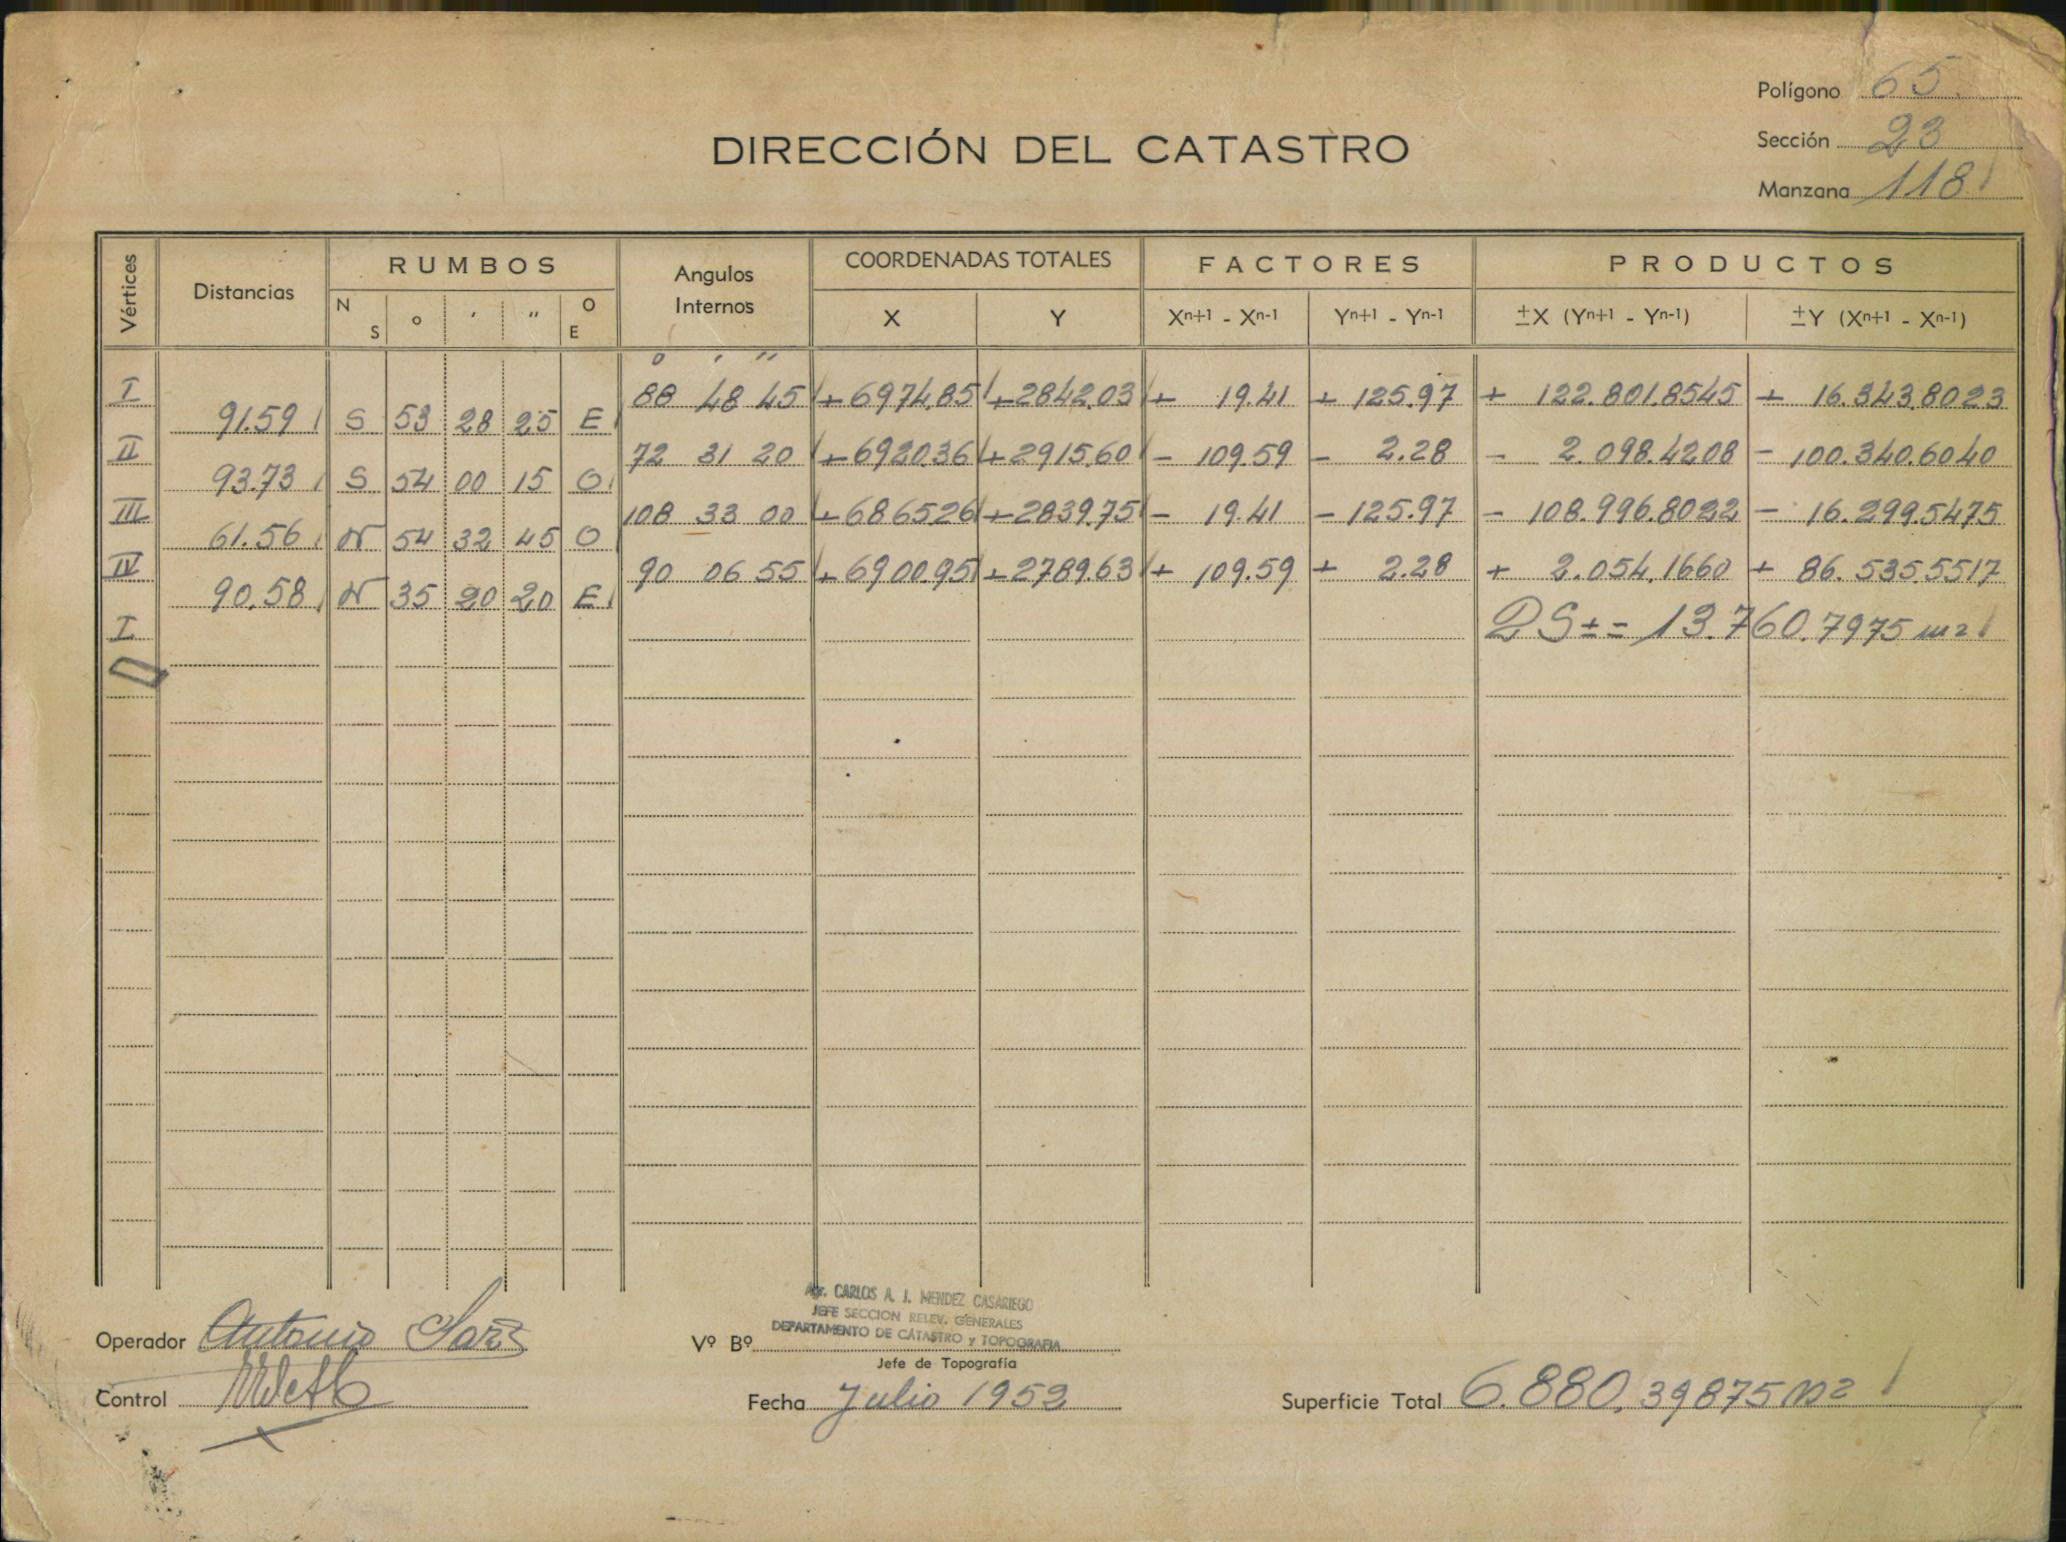 Polígono 65.
DIRECCIÓN DEL CATASTRO
Sección 23
Manzana 118
Vértices Distancias RUMBOS Angulos Internos COORDENADAS TOTALES FACTORES PRODUCTOS
N S o ′ ″ O E X Y Xn+1 - Xn-1 Yn+1 - Yn-1 ±X (Yn+1 - Yn-1) ±Y (Xn+1 - Xn-1)
o ′ ″
I 88 48 45 +6974.85 +2842.03 + 19.41 + 125.97 + 122.801.8545 + 16.343.8023
91.59 S 53 28 25 E
II 72 31 20 +6920.36 +2915.60 - 109.59 - 2.28 - 2.098.4208 - 100.340.6040
93.73 S 54 00 15 O
III 108 33 00 +6865.26 +2839.75 - 19.41 - 125.97 - 108.996.8022 - 16.299.5475
61.56 N 54 32 45 O
IV 90 06 55 +6900.95 +2789.63 + 109.59 + 2.28 + 2.054.1660 + 86.535.5517
90.58 N 35 20 20 E
I 2S±= 13.760.7975 m2
Agr. CARLOS A. J. MENDEZ CASARIEGO
JEFE SECCION RELEV. GENERALES
DEPARTAMENTO DE CATASTRO y TOPOGRAFIA
Operador Antonio
Vº Bº
Jefe de Topografía
Control
Fecha Julio 1952
Superficie Total 6.880.39875 m2